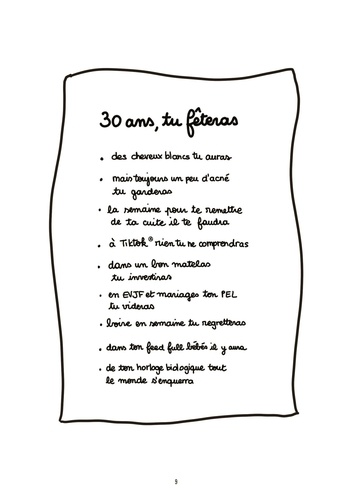 30 ans, tu fêteras
• des cheveux blancs tu auras
• mais toujours un peu d'acné
tu garderas
• la semaine pour te remettre
de ta cuite il te faudra
• à Tiktok® rien tu ne comprendras
• dans un bon matelas
tu investiras
• en EVJF et mariages ton PEL
tu videras
• boire en semaine tu regretteras
• dans ton feed full bébés il y aura
• de ton horloge biologique tout
le monde s'enquerra
9